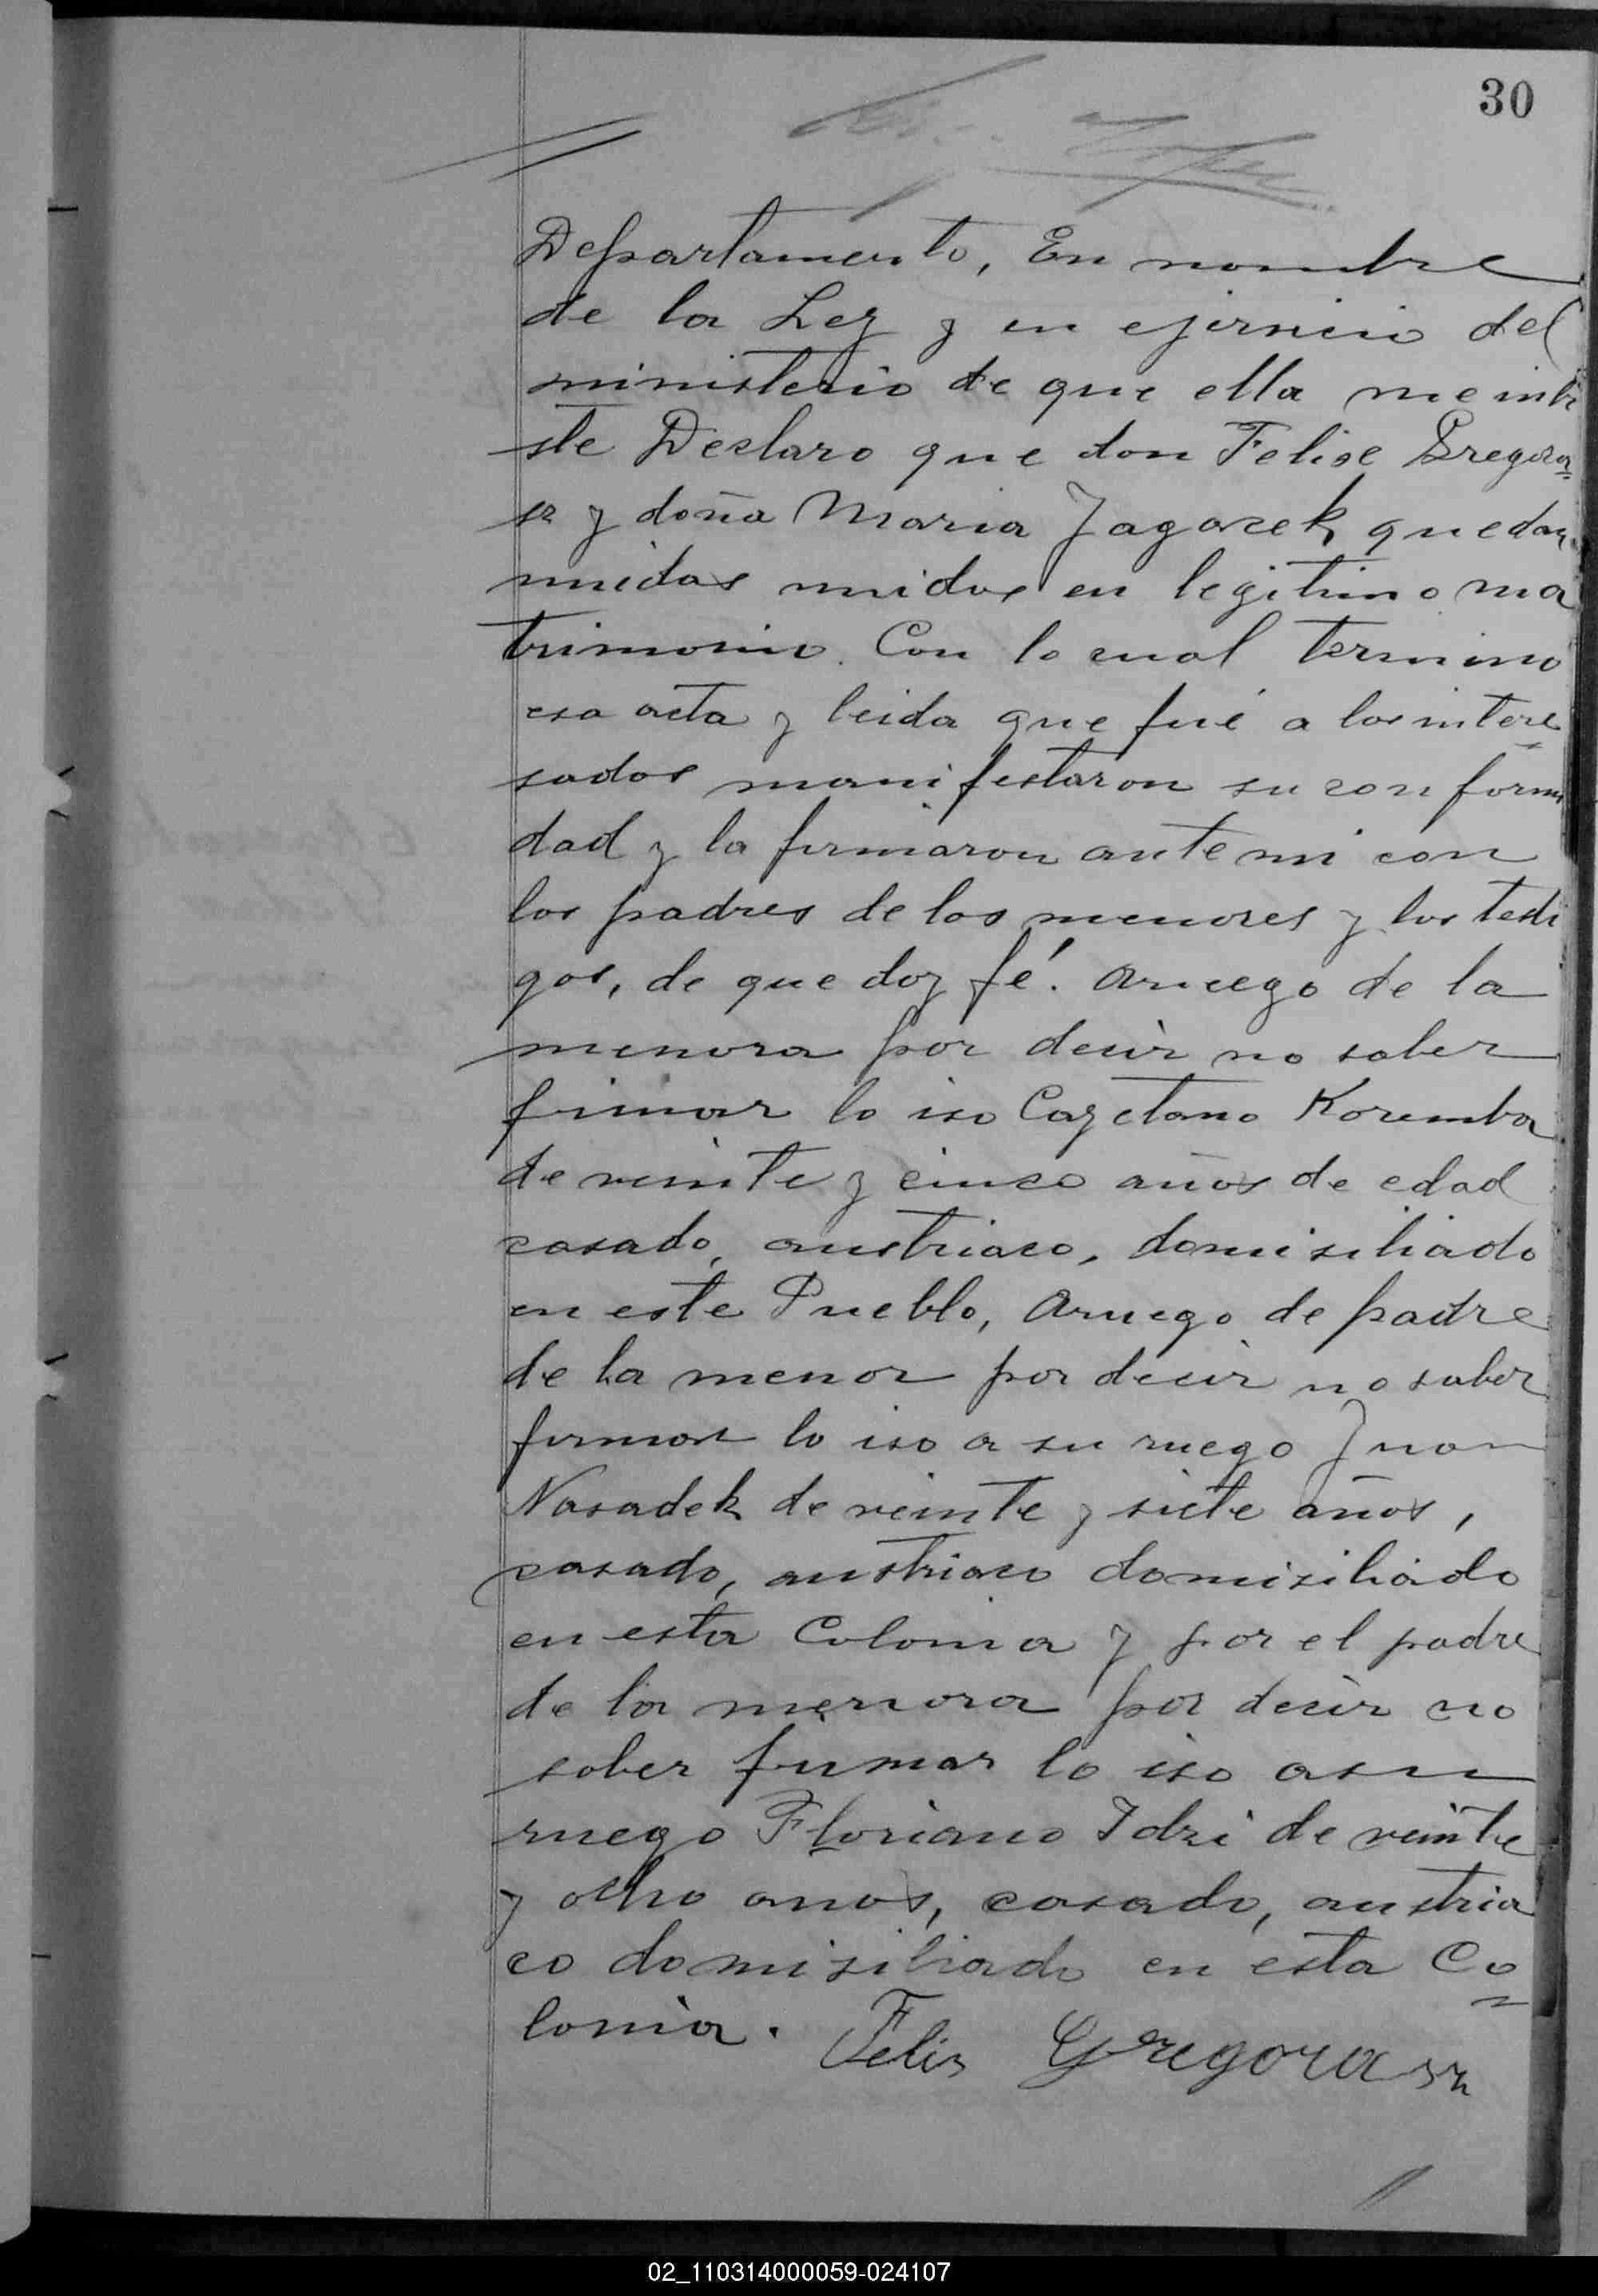 30
Departamento, En nombre
de la Ley y en ejersicio del
ministerio de que ella me inbi
ste Declaro que don Felise Gregora=
sz y doña Maria Jagasek quedan
unidas unidos en legitimo ma
trimonio. Con lo cual termino
esa acta y leida que fué a los intere
sados manifestaron su conformi
dad y la firmaron ante mi con
los padres de los menores y los testi
gos, de que doy fé. Aruego de la
menora por decir no saber
firmar lo iso Cayetano Koremba
de veinte y cinco años de edad
casado, austriaco, domisiliado
en este Pueblo, Aruego de padre
de la menor por decir no saber
firmar lo iso a su ruego Juan
Nasadek de veinte y siete años,
casado, austriaco domisiliado
en esta Colonia y por el padre
de la menora por decir no
saber firmar lo iso a su
ruego Floriano Idzi de veinte
y ocho anos, casado, austria
co domisiliado en esta Co=
lonia. Felis Gregorasz
02_110314000059-024107